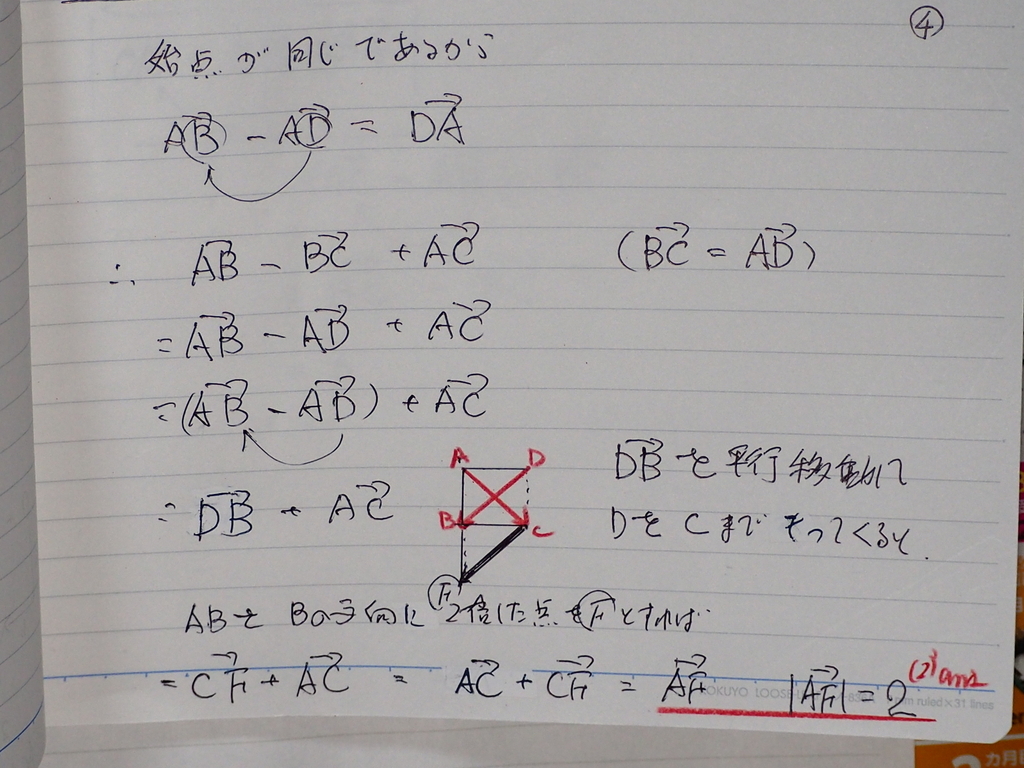 ④
始点が同じであるから
AB→ - AD→ = DA→
∴ AB→ - BC→ + AC→ (BC→ = AD→)
= AB→ - AD→ + AC→
= (AB→ - AD→) + AC→
= DB→ + AC→
A D
B C
F
DB→を平行移動して
DをCまでもってくると.
ABをBの方向に2倍した点をFとすれば
= CF→ + AC→ = AC→ + CF→ = AF→ |AF→| = 2 (2)ans
KOKUYO LOOSE
mm ruled×31 lines
カ月